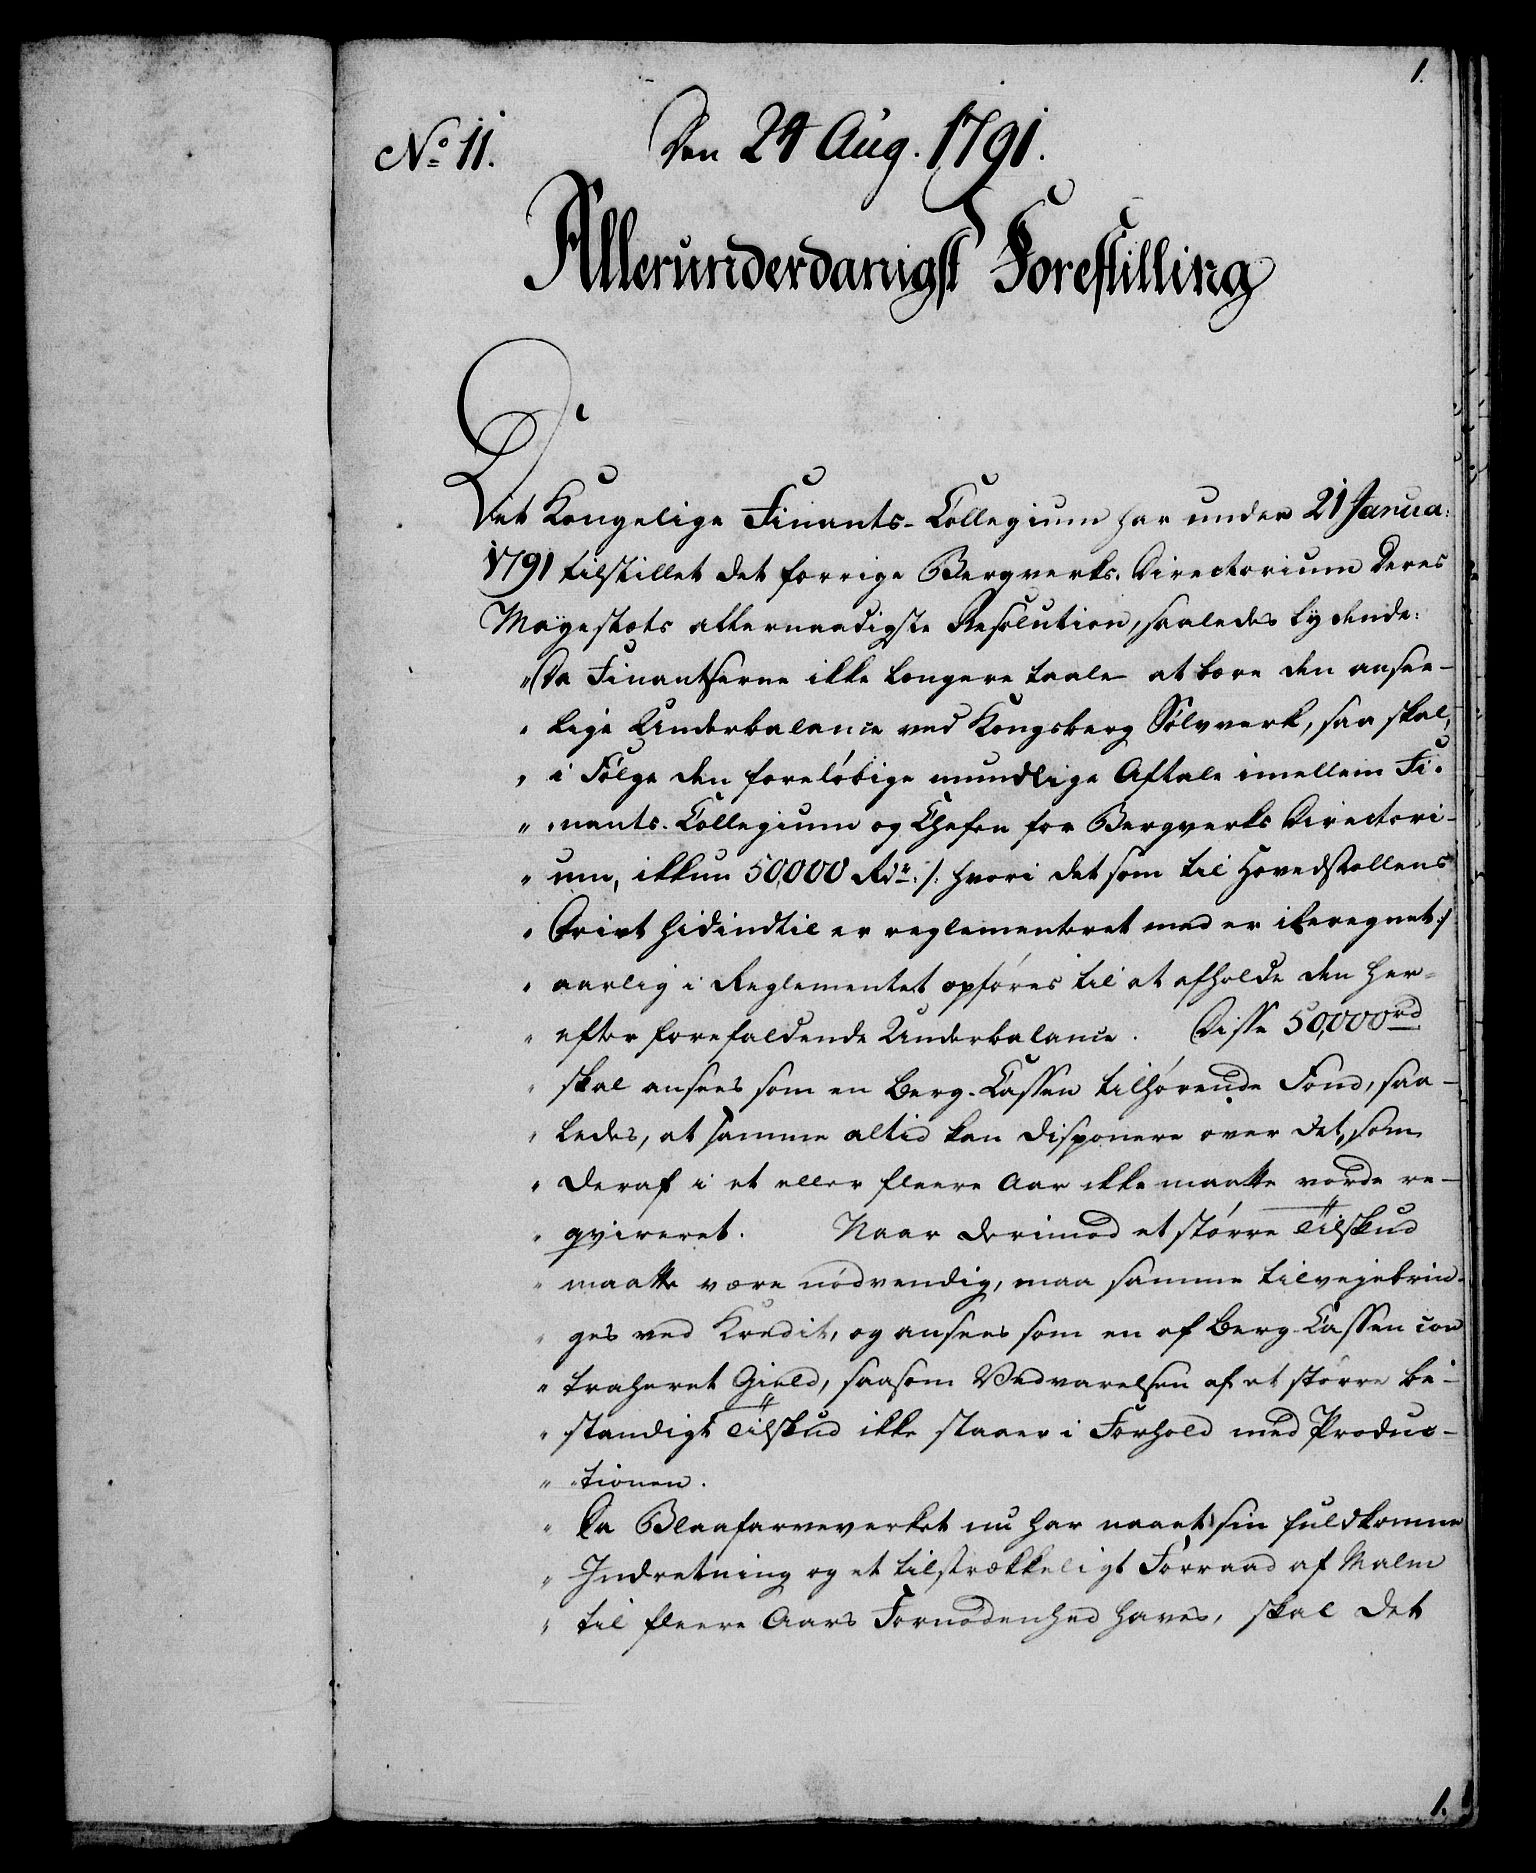 1.
No 11.
Den 24 Aug. 1791.
Allerunderdanigst Forestilling
Det Kongelige Finants-Collegium har under 21 Janua:
1791 tilstillet det forrige Bergverks-Directorium Deres
Mayestæts allernaadigste Resolution, saaledes lydende:
"Da Finantserne ikke længere taale at bære den ansee-
" lige Underbalance ved Kongsberg Sølvverk, saa skal,
" i Følge den foreløbige mundtlige Aftale imellem Fi-
" nants-Collegium og Chefen for Bergverks Directori-
" um, ikkun 50,000 Rdr /: hvori det som til Hovedstollens
" Drivt hidindtil er reglementeret med er iberegnet :/
" aarlig i Reglementet opføres til at afholde den her-
" efter forefaldende Underbalance. Disse 50,000 rd
" skal ansees som en Berg-Cassen tilhørende Fond, saa-
" ledes, at samme altid kan disponere over det, som
" deraf i et eller fleere Aar ikke maatte vorde re-
" qvireret. Naar derimod et større Tilskud
" maatte være nødvendig, maa samme tilvejebrin-
" ges ved Kredit, og ansees som en af Berg-Cassen con
" traheret Gield, saasom Vedvarelsen af et større be-
" standigt Tilskud ikke staaer i Forhold med Produc-
" tionen.
" Da Blaafarveverket nu har naaet sin fuldkomne
" Indretning og et tilstrækkeligt Forraad af Malm
" til fleere Aars Fornødenhed haves, skal det
1.